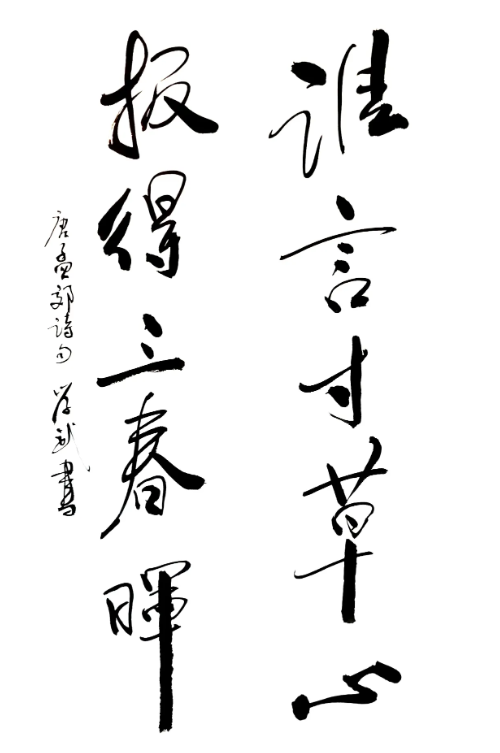 谁言寸草心
报得三春晖
唐孟郊诗句 学武书